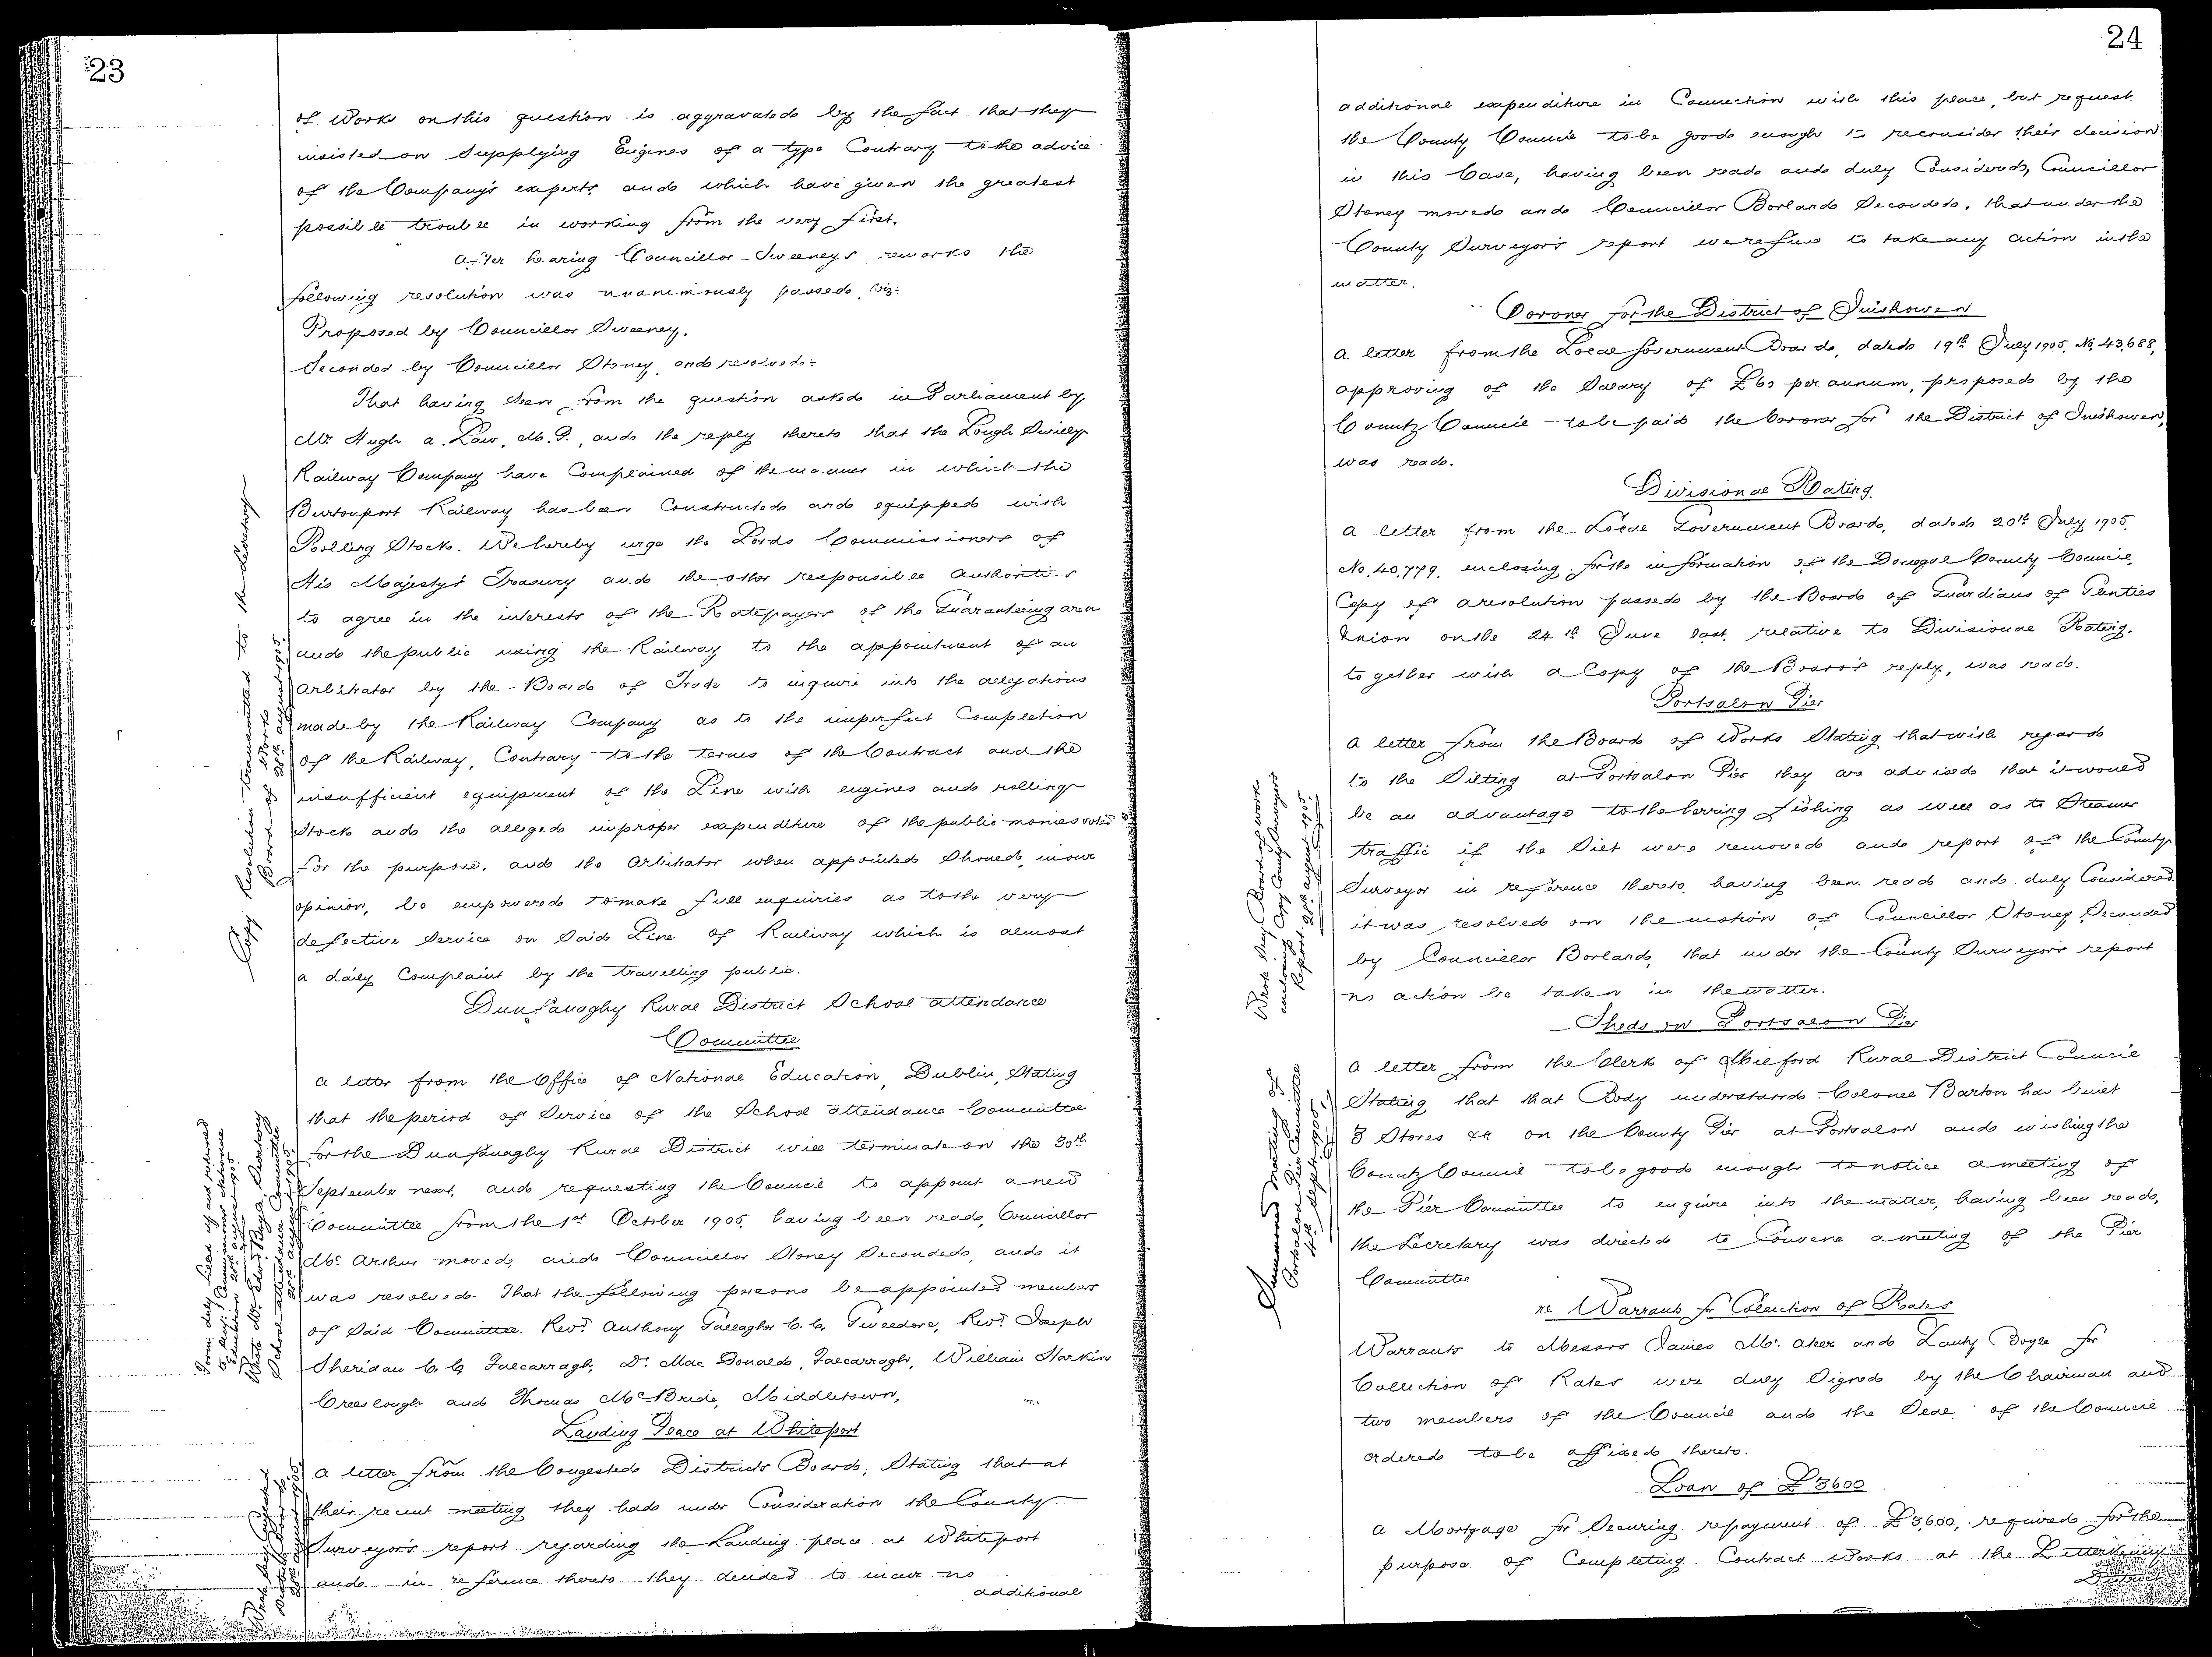 23
of Works on this question is aggravated by the fact that they
insisted on supplying Engines of a type Contrary to the advice
of the Company's experts and which have given the greatest
possible trouble in working from the very first.
After hearing Councillor Sweeney's remarks the
following resolution was unanimously passed, viz:
Proposed by Councillor Sweeney.
Seconded by Councillor Stoney and resolved:
That having seen from the question asked in Parliament by
Mr Hugh A. Law, M.P., and the reply thereto that the Lough Swilly
Railway Company have Complained of the manner in which the
Burtonport Railway has been Constructed and equipped with
Rolling Stock. We hereby urge the Lords Commissioners of
His Majesty's Treasury and the other responsible Authorities
to agree in the interests of the Ratepayers of the Guaranteeing area
and the public using the Railway to the appointment of an
Arbitrator by the Board of Trade to inquire into the allegations
made by the Railway Company as to the imperfect Completion
of the Railway, Contrary to the terms of the Contract and the
insufficient equipment of the Line with engines and rolling
Stock and the alleged improper expenditure of the public monies voted
for the purpose, and the Arbitrator when appointed Should, in our
opinion, be empowered to make full enquiries as to the very
defective Service on Said Line of Railway which is almost
a daily Complaint by the travelling public.
Copy Resolution transmitted to the Secretary
Board of Works
28th August 1905.
Dunfanaghy Rural District School Attendance
Committee
A letter from the Office of National Education, Dublin, Stating
that the period of Service of the School Attendance Committee
for the Dunfanaghy Rural District will terminate on the 30th
September next, and requesting the Council to appoint a new
Committee from the 1st October 1905, having been read, Councillor
Mc Arthur moved, and Councillor Stoney Seconded, and it
was resolved. That the following persons be appointed members
of Said Committee. Revd. Anthony Gallagher C.C. Gweedore, Revd. Joseph
Sheridan C.C. Falcarragh, Dr. Mac Donald, Falcarragh, William Harkin
Creeslough and Thomas McBride, Middletown,
Form duly filled up and returned
to Commissioners National
Education
Wrote Mr. Secretary
School Attendance Committee
Landing Place at Whiteport
A letter from the Congested Districts Board, Stating that at
their recent meeting they had under Consideration the County
Surveyor's report regarding the Landing place at Whiteport
and in reference thereto they decided to incur no
additional
Wrote Secy Congested
Districts Board
24
additional expenditure in Connection with this place, but request
the County Council to be good enough to reconsider their decision
in this Case, having been read and duly Considered, Councillor
Stoney moved and Councillor Borland Seconded, that under the
County Surveyor's report we refuse to take any action in the
matter.
Coroner for the District of Inishowen
A letter from the Local Government Board, dated 19th July 1905, No. 43,688,
approving of the Salary of £60 per annum, proposed by the
County Council to be paid the Coroner for the District of Inishowen,
was read.
Divisional Rating.
A letter from the Local Government Board, dated 20th July 1905
No. 40,779, enclosing for the information of the Donegal County Council,
Copy of a resolution passed by the Board of Guardians of Glenties
Union on the 24th June last relative to Divisional Rating,
together with a Copy of the Board's reply, was read.
Portsalon Pier
A letter from the Board of Works Stating that with regard
to the Silting at Portsalon Pier they are advised that it would
be an advantage to the herring fishing as well as to Steamer
traffic if the Silt were removed and report of the County
Surveyor in reference thereto, having been read and duly Considered
it was resolved on the motion of Councillor Stoney Seconded
by Councillor Borland, that under the County Surveyor's report
no action be taken in the matter.
Wrote Secy Board of Works
enclosing Copy County Surveyor's
Report 28th August 1905.
Sheds on Portsalon Pier
A letter from the Clerk of Milford Rural District Council
Stating that that Body understand Colonel Barton has built
3 Stores &c on the County Pier at Portsalon and wishing the
County Council to be good enough to notice a meeting of
the Pier Committee to enquire into the matter, having been read,
the Secretary was directed to Convene a meeting of the Pier
Committee
Summoned meeting of
Portsalon Pier Committee
4th Sept 1905.
re Warrants for Collection of Rates
Warrants to Messrs James Mc. Ateer and Lanty Boyle for
Collection of Rates were duly Signed by the Chairman and
two members of the Council and the Seal of the Council
ordered to be affixed thereto.
Loan of £3600
A Mortgage for Securing repayment of £3,600, required for the
purpose of Completing Contract Works at the Letterkenny
District